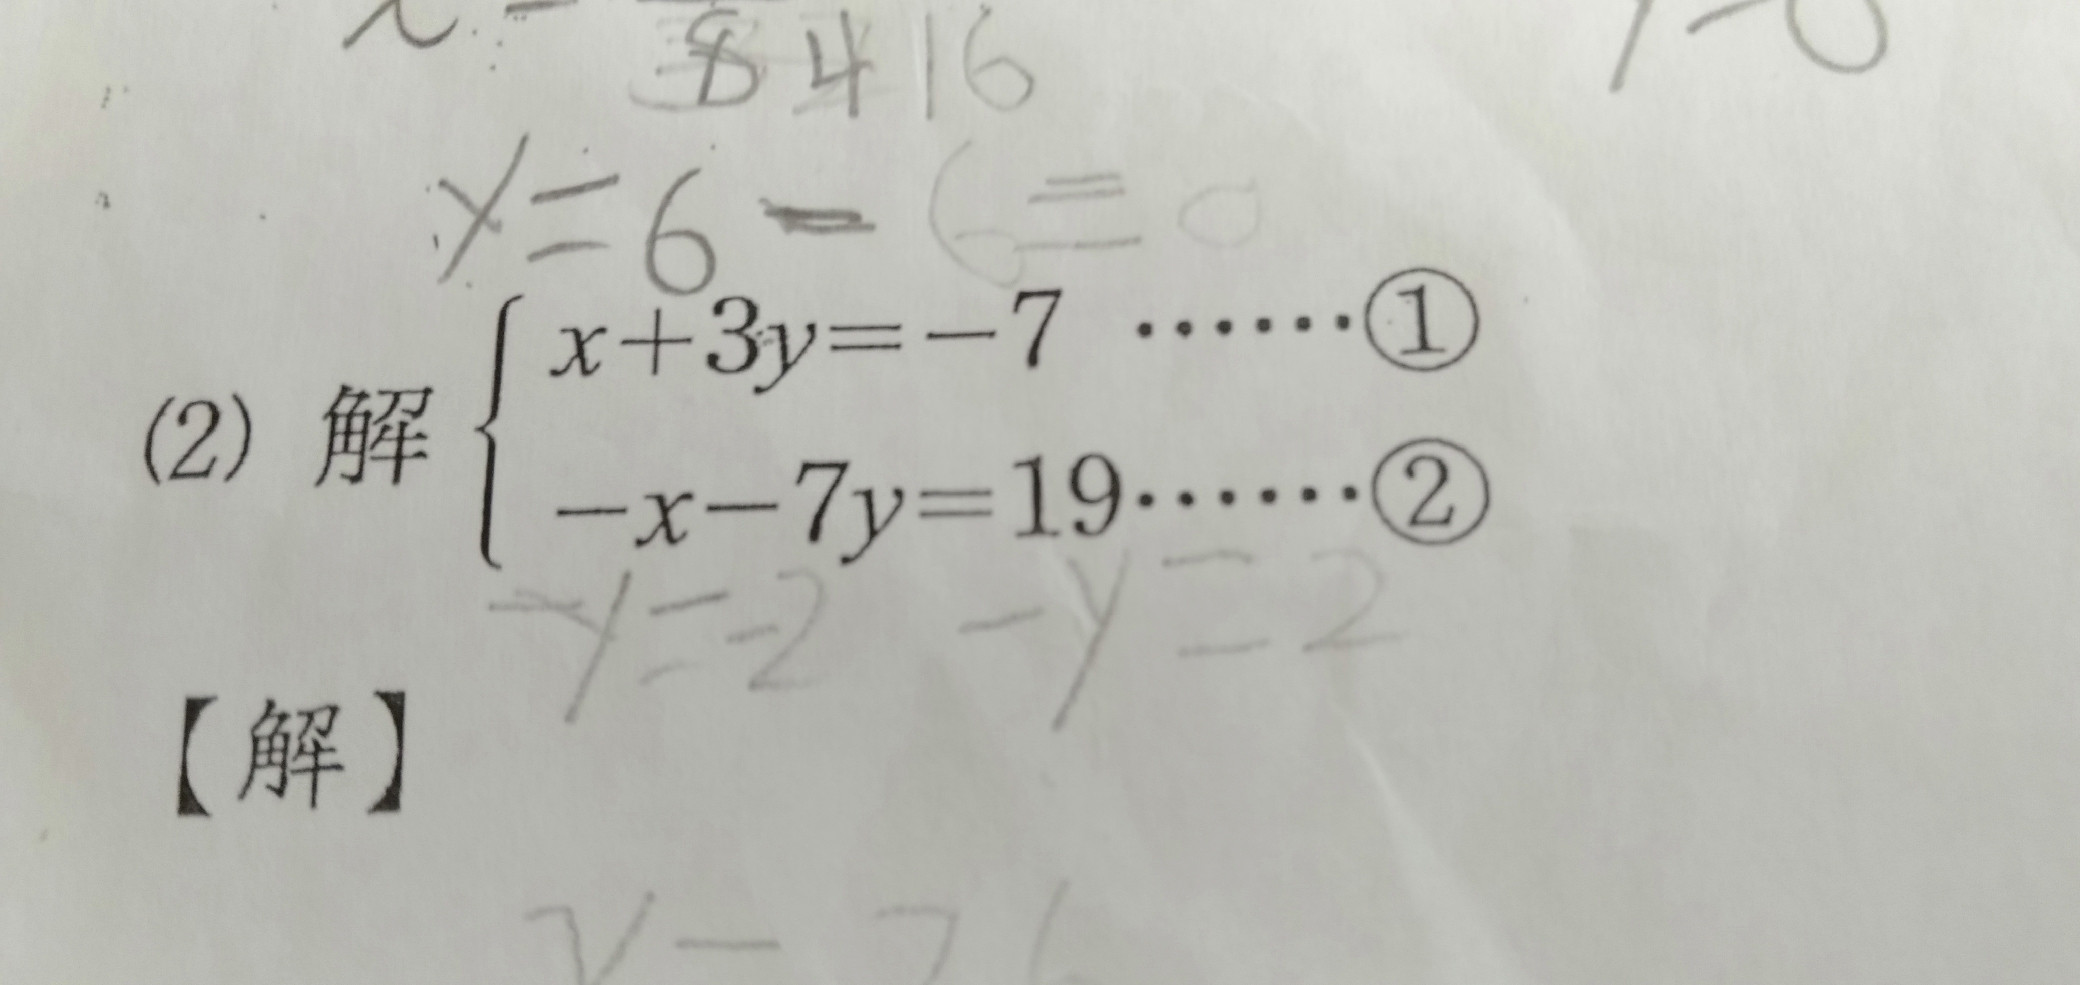 8 4 16
y=6-6=0
(2) 解 { x+3y=-7 ……①
-x-7y=19……②
-y=-2 -y=2
【解】